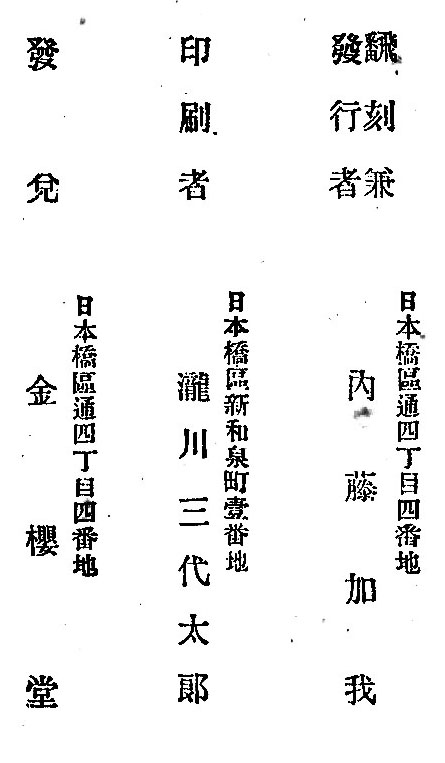 飜刻兼
發行者
日本橋區通四丁目四番地
內藤加我
印刷者
日本橋區新和泉町壹番地
瀧川三代太郎
發兌
日本橋區通四丁目四番地
金櫻堂